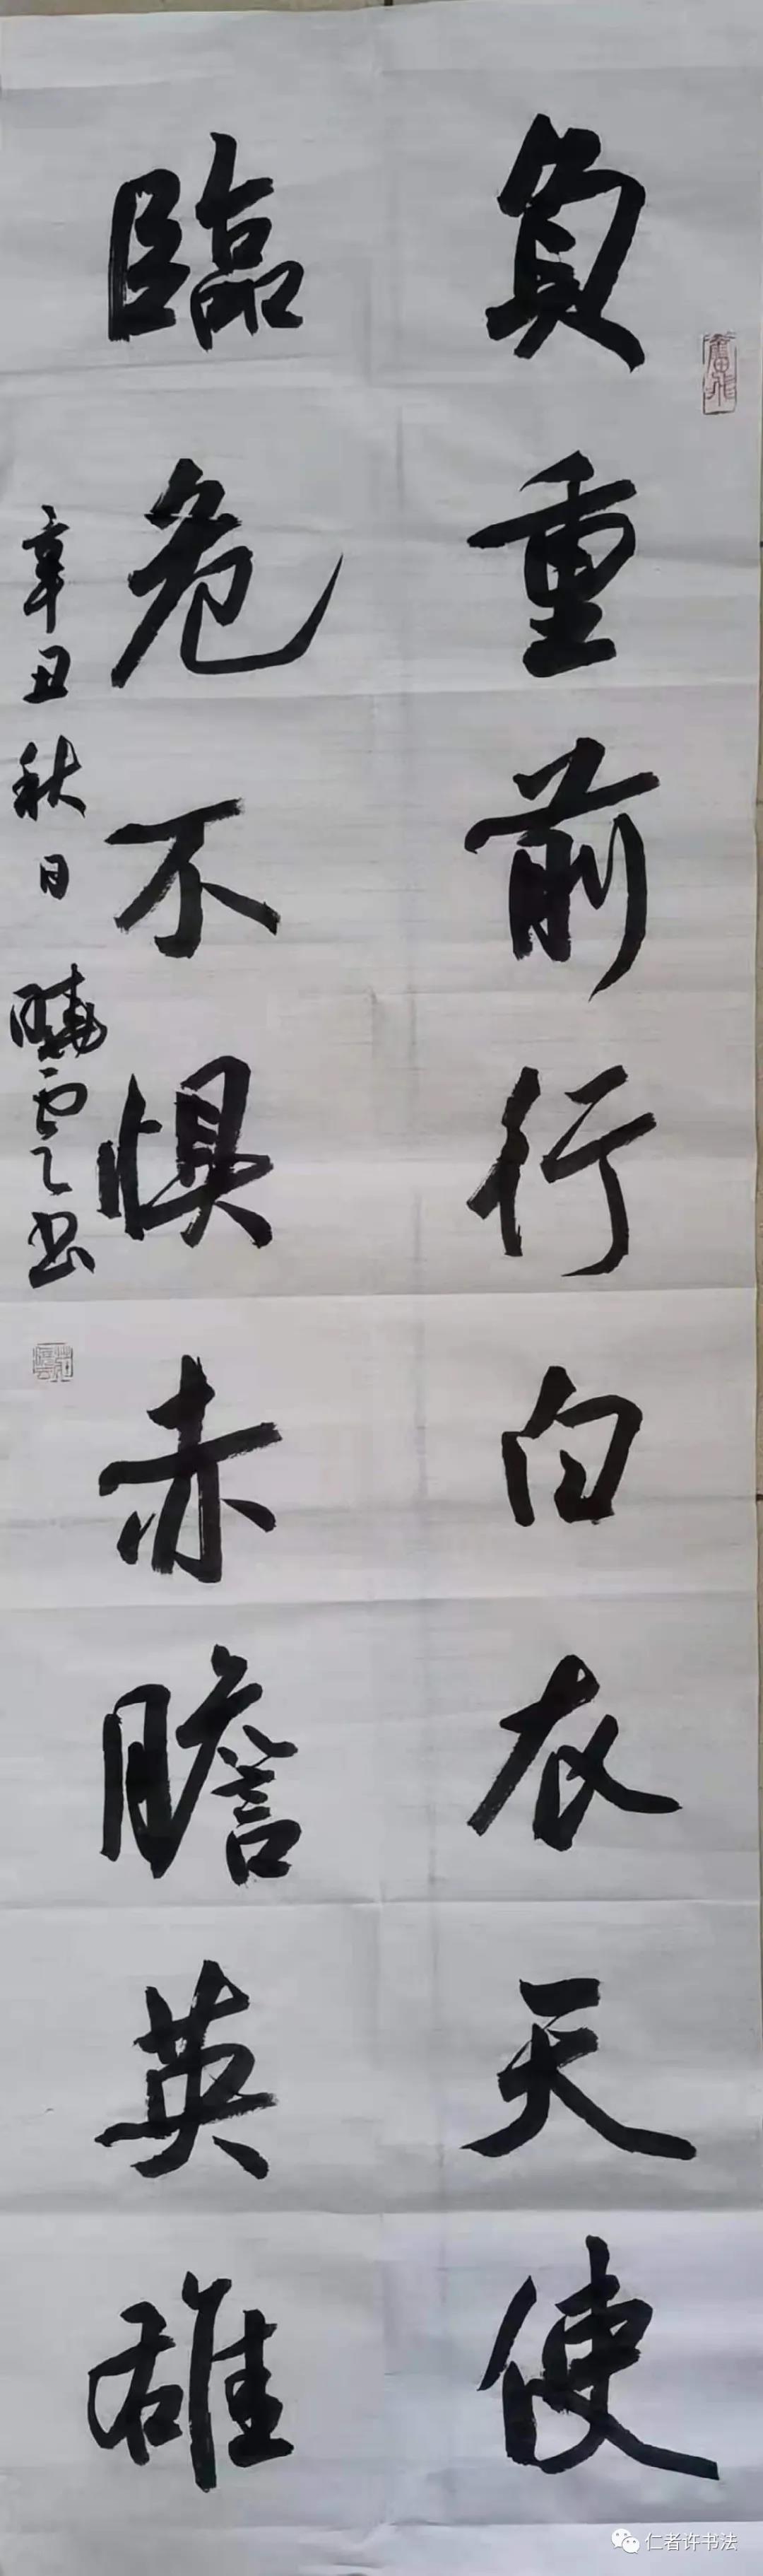 負重前行白衣天使
臨危不懼赤膽英雄
辛丑秋日曉雲書
仁者许书法